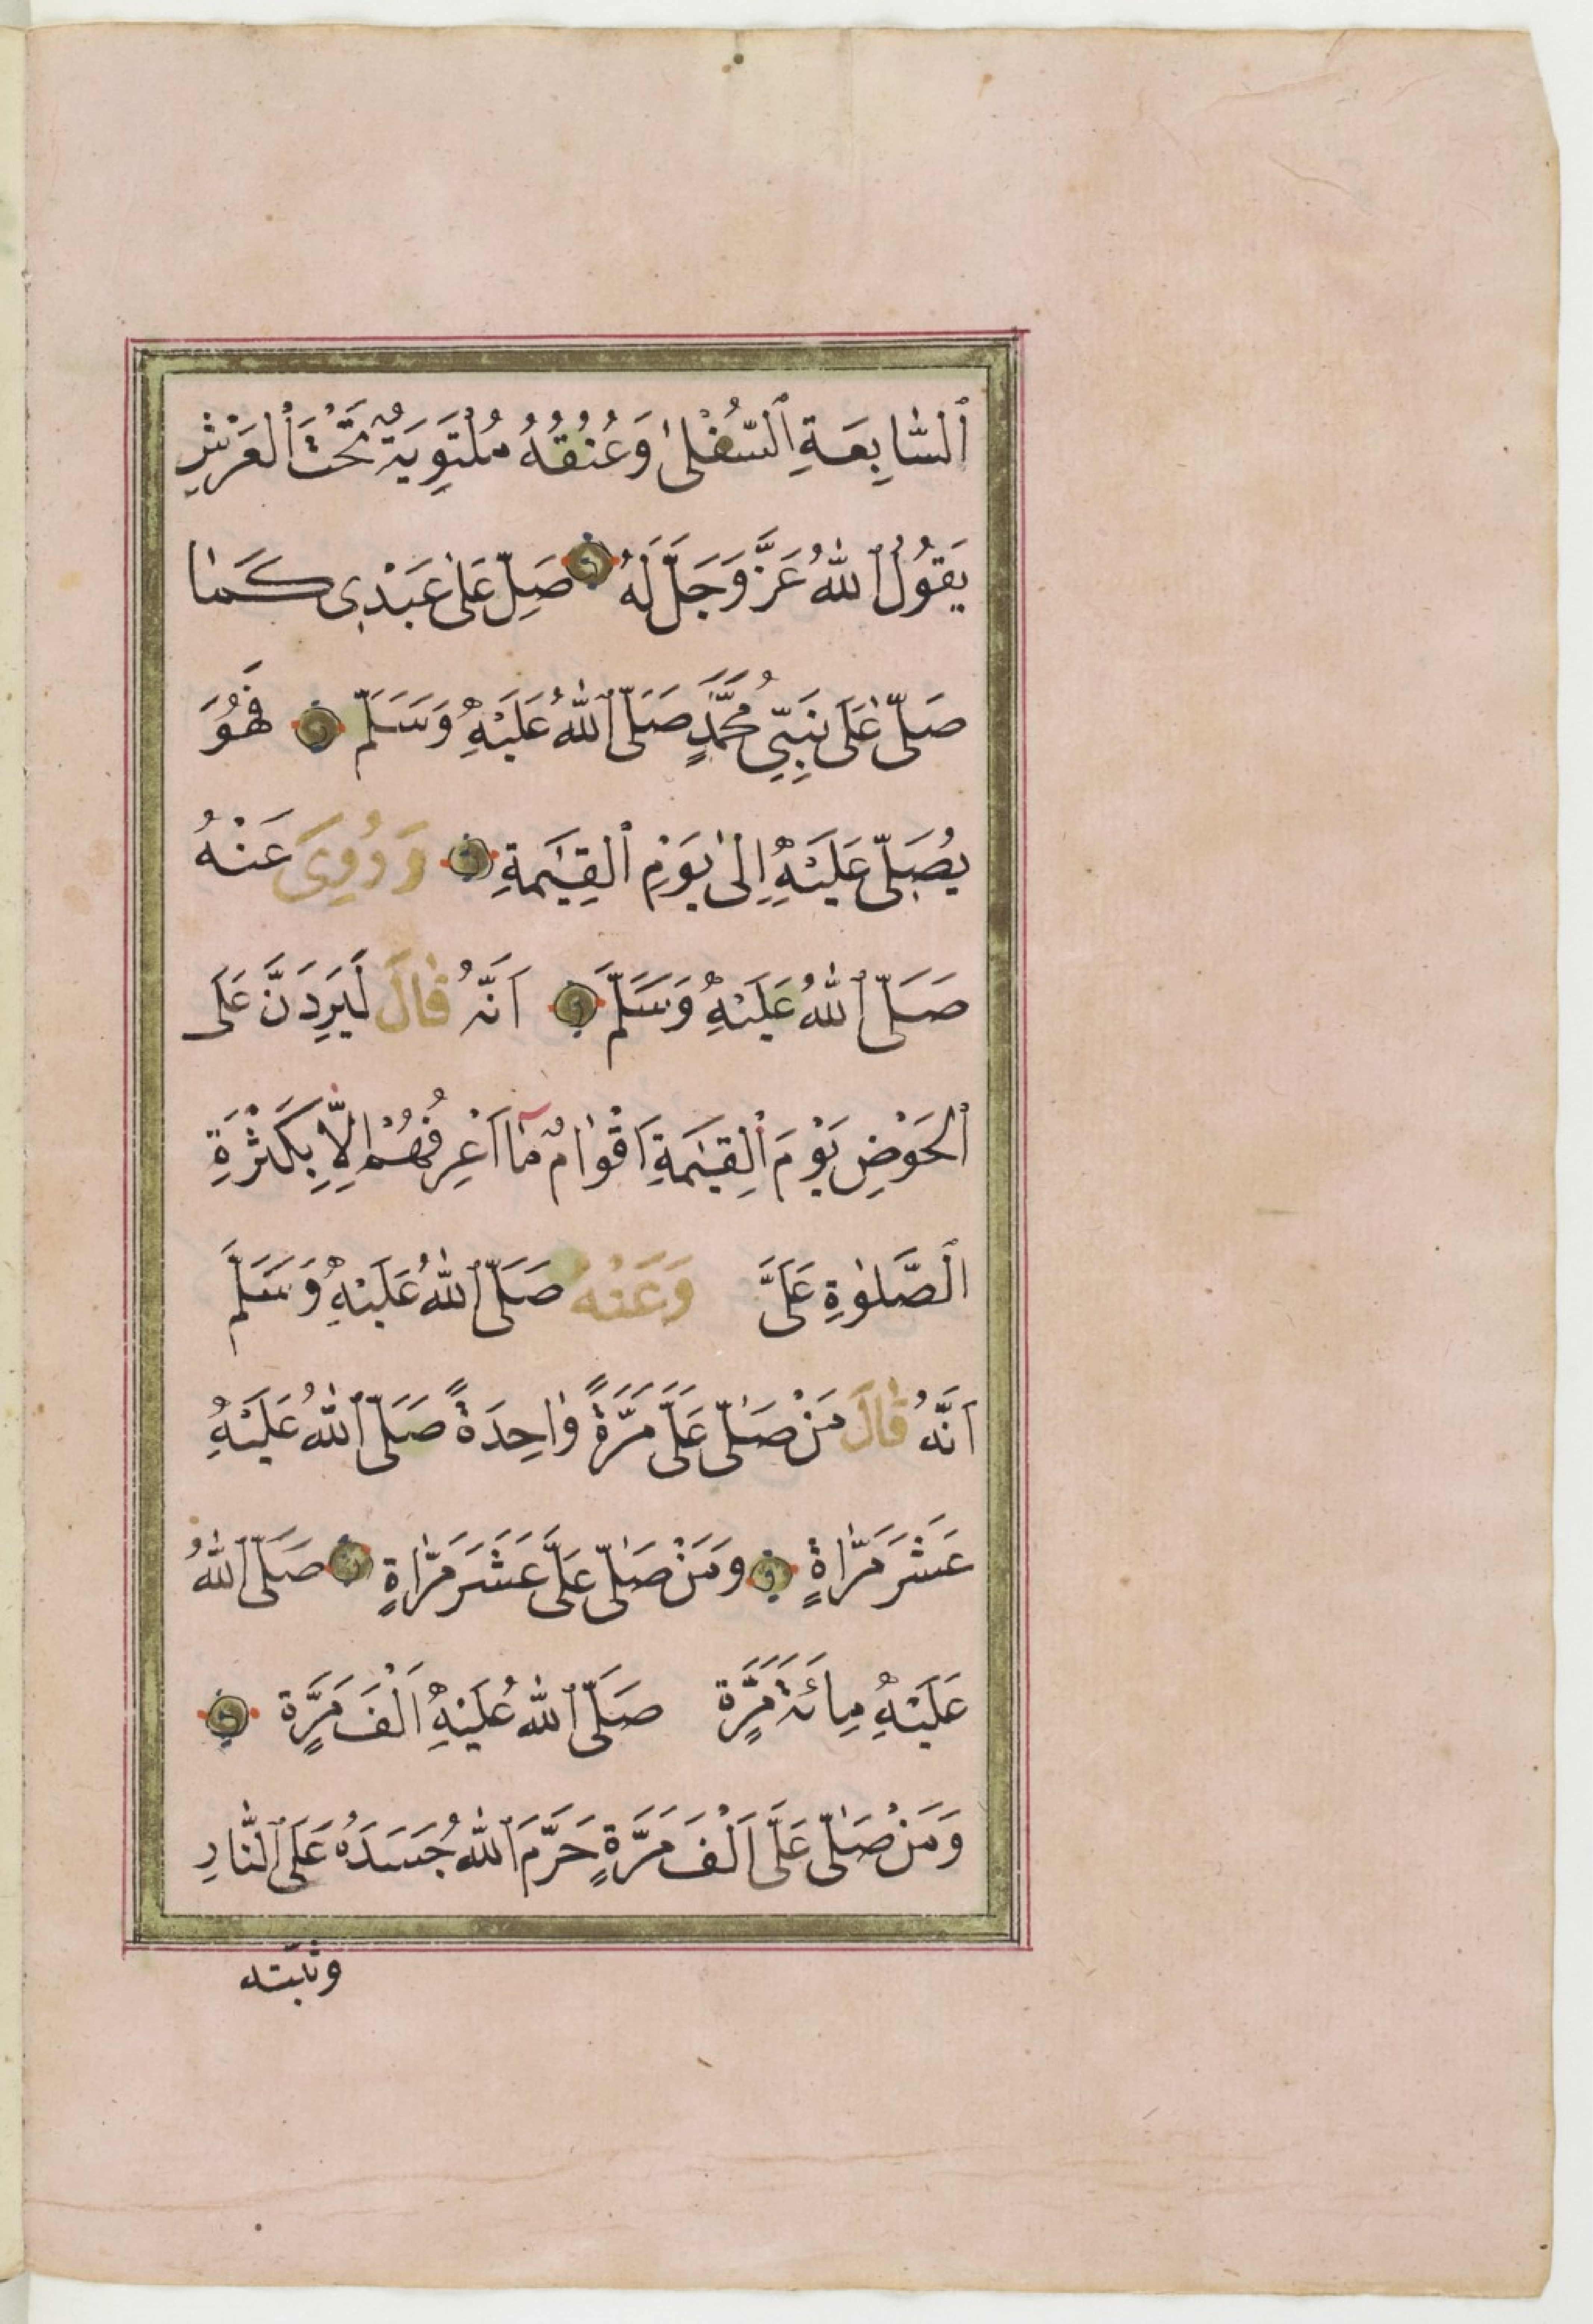 ٱلسَّابِعَةِ ٱلسُّفْلىٰ وَعُنُقُهُ مُلْتَوِيَةٌ تَحْتَ ٱلْعَرْشِ
يَقُولُ ٱللّٰهُ عَزَّ وَجَلَّ لَهُ صَلِّ عَلىٰ عَبْدِى كَمَا
صَلّٰى عَلَى نَبِيِّي مُحَمَّدٍ صَلَّى ٱللّٰهُ عَلَيْهِ وَسَلَّمَ فَهُوَ
يُصَلِّى عَلَيْهِ اِلىٰ يَوْمِ ٱلْقِيٰمَةِ وَرُوِىَ عَنْهُ
صَلَّى ٱللّٰهُ عَلَيْهِ وَسَلَّمَ اَنَّهُ قَالَ لَيَرِدَنَّ عَلَى
ٱلْحَوْضِ يَوْمَ ٱلْقِيٰمَةِ اَقْوَامٌ مَآ اَعْرِفُهُمْ اِلَّا بِكَثْرَةِ
ٱلصَّلٰوةِ عَلَىَّ وَعَنْهُ صَلَّى ٱللّٰهُ عَلَيْهِ وَسَلَّمَ
اَنَّهُ قَالَ مَنْ صَلّٰى عَلَىَّ مَرَّةً وَاحِدَةً صَلَّى ٱللّٰهُ عَلَيْهِ
عَشْرَ مَرَّاةٍ وَمَنْ صَلّٰى عَلَىَّ عَشَرَ مَرَّاةٍ صَلَّى ٱللّٰهُ
عَلَيْهِ مِائَةَ مَرَّةٍ صَلَّى ٱللّٰهُ عَلَيْهِ اَلْفَ مَرَّةٍ
وَمَنْ صَلّٰى عَلَىَّ اَلْفَ مَرَّةٍ حَرَّمَ ٱللّٰهُ جَسَدَهُ عَلَى ٱلنَّارِ
وثبته